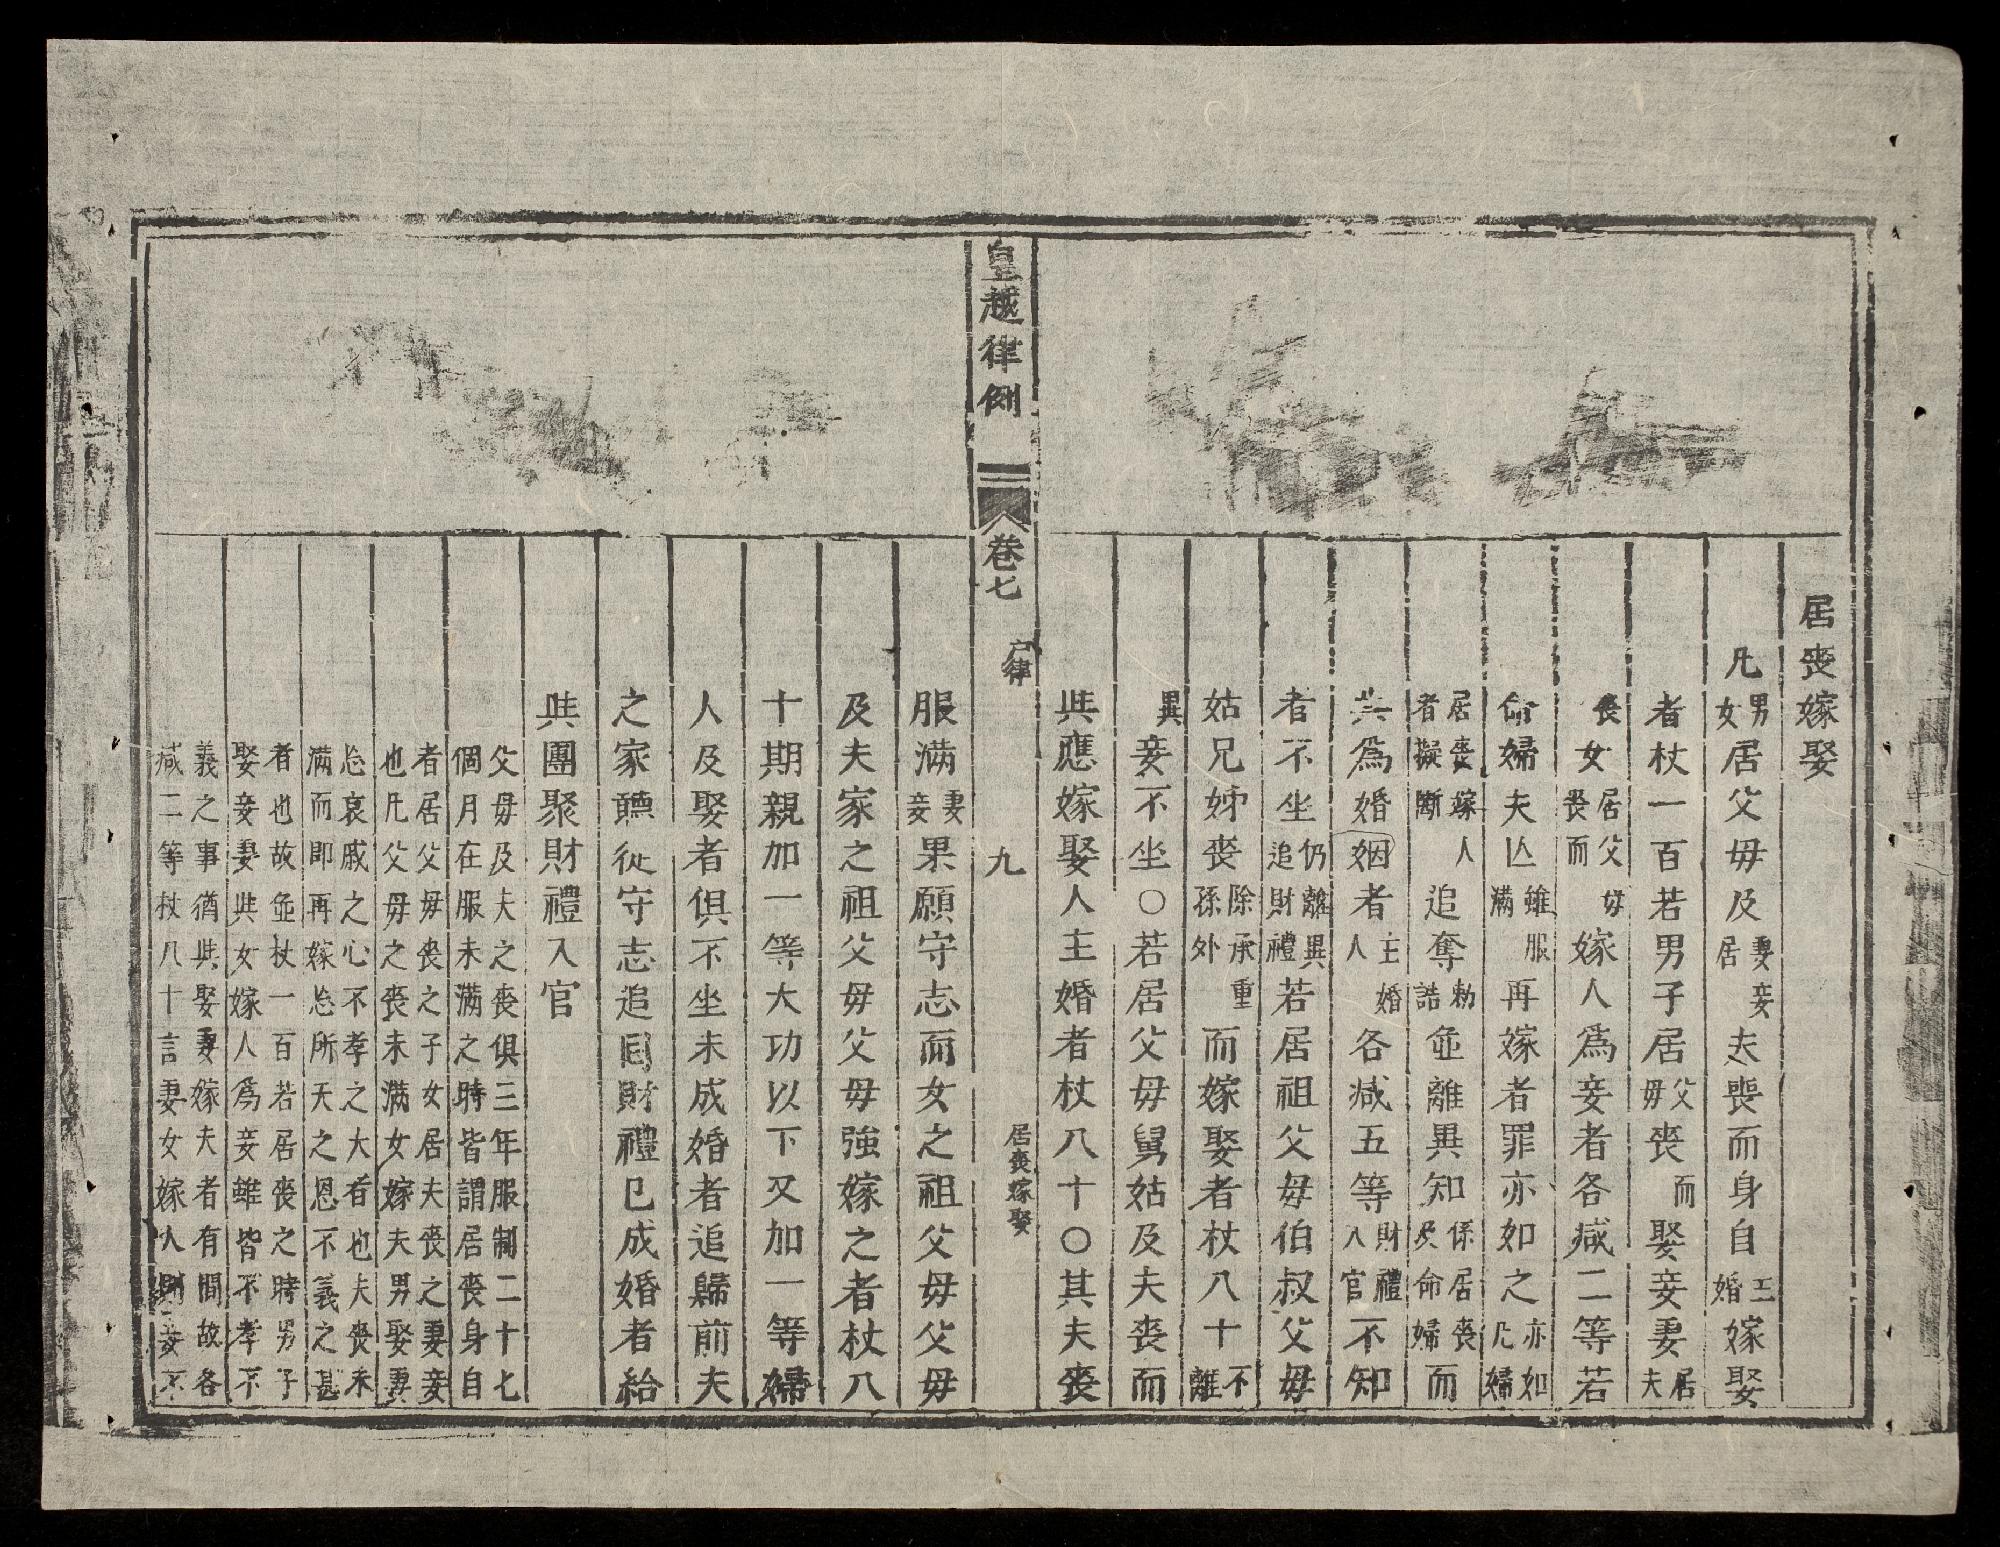 居喪嫁娶
凡男女居父母及妻妾居夫喪而身自主婚嫁娶
者杖一百若男子居父母喪而娶妾妻居夫
喪女居父母喪而嫁人爲妾者各减二等若
命婦夫亾雖服滿再嫁者罪亦如之亦如凡婦
居喪嫁人者擬斷追奪勅誥並離異知係居喪及命婦而
共爲婚姻者主婚人各减五等財禮入官不知
者不坐仍離異追財禮若居祖父毋伯叔父毋
姑兄姊喪除承重孫外而嫁娶者杖八十不離
異妾不坐○若居父毋舅姑及夫喪而
與應嫁娶人主婚者杖八十○其夫喪
皇越律例
卷七
户律
九
居喪嫁娶
服滿妻妾果願守志而女之祖父毋父毋
及夫家之祖父毋父毋強嫁之者杖八
十期親加一等大功以下又加一等婦
人及娶者俱不坐未成婚者追歸前夫
之家聽從守志追囘財禮已成婚者給
與團聚財禮入官
父毋及夫之喪俱三年服制二十七
個月在服未滿之時皆謂居喪身自
者居父毋喪之子女居夫喪之妻妾
也凡父毋之喪未滿女嫁夫男娶妻
忘哀戚之心不孝之大者也夫喪未
滿而即再嫁忘所天之恩不義之甚
者也故並杖一百若居喪之時男子
娶妾妻與女嫁人爲妾雖皆不孝不
義之事猶與娶妻嫁夫者有間故各
减二等杖八十言妻女嫁人則妾不